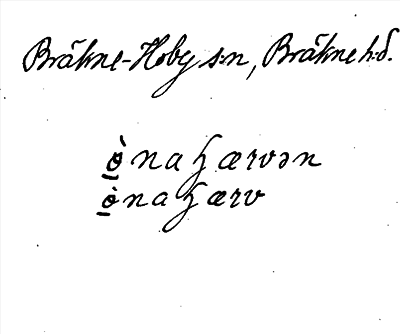 Bräkne-Hoby s:n, Bräkne h:d.
ò̱naꜧærvən
ò̱naꜧærv